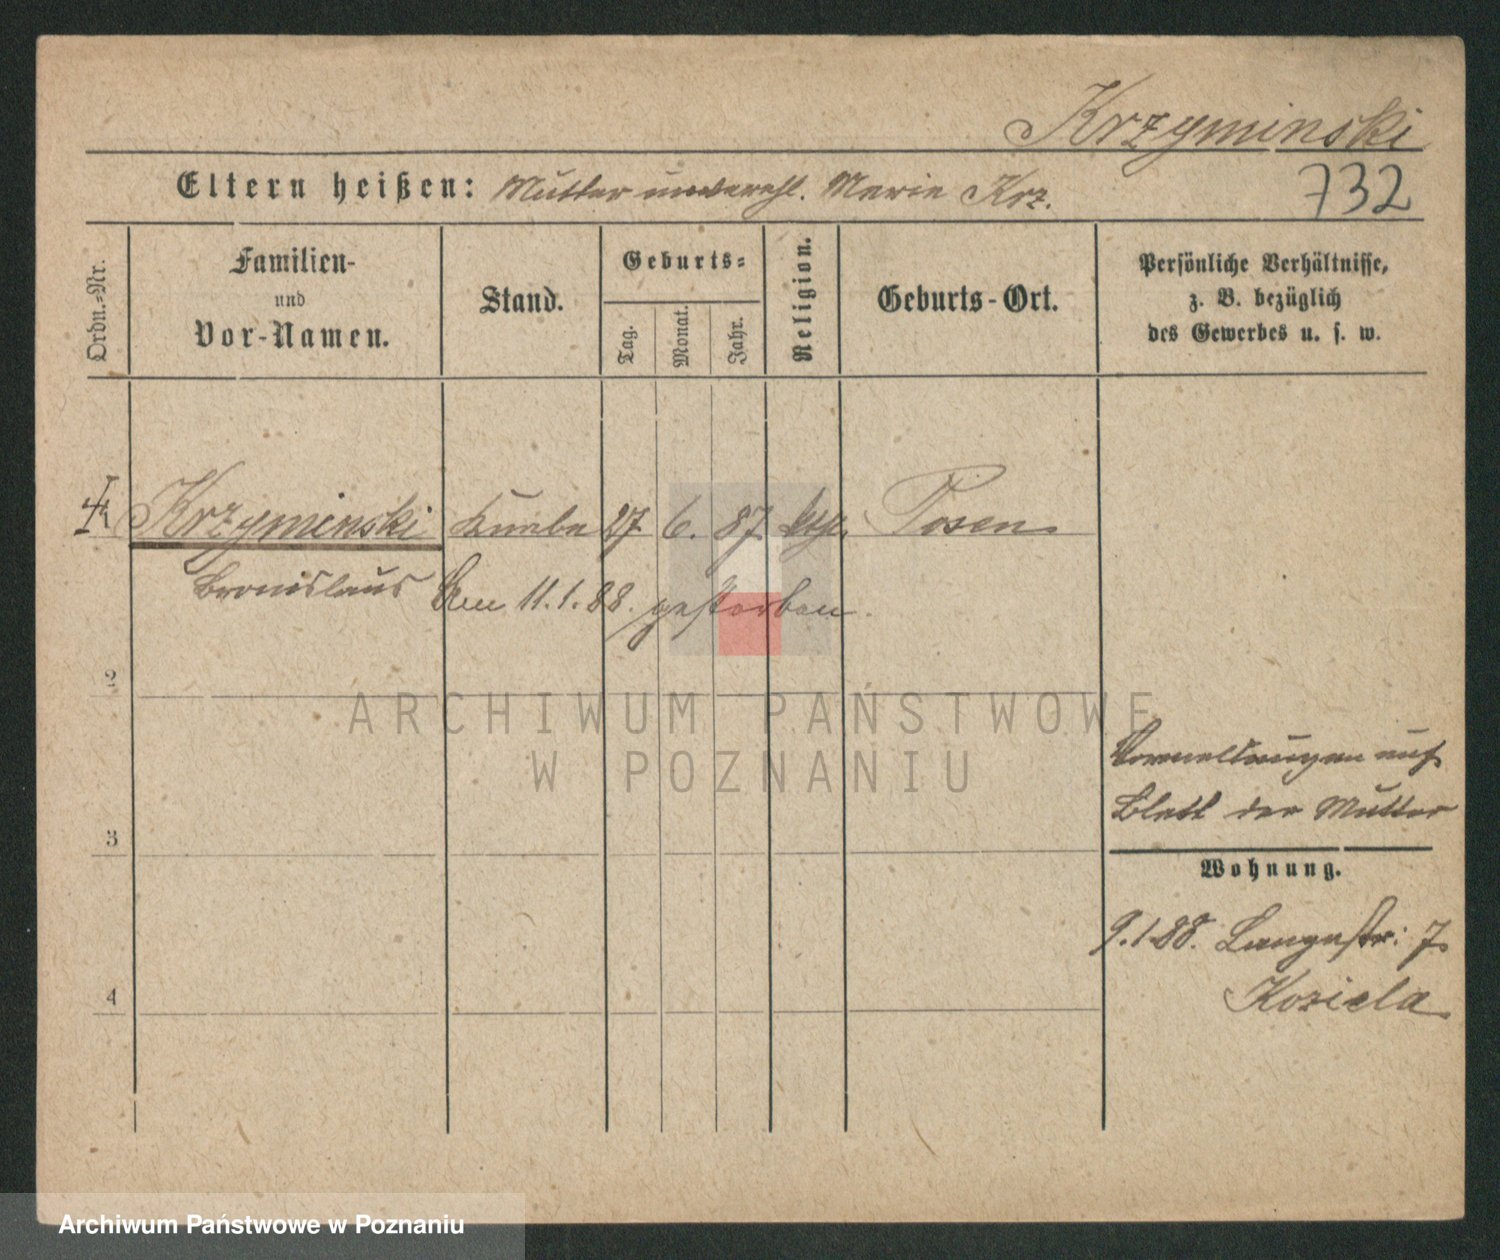 Krzyminski
Eltern heißen: Mutter unverehl. Marie Krz.
732
Ordn.-Nr.
Familien-
und
Vor-Namen.
Stand.
Geburts-
Tag.
Monat.
Jahr.
Religion.
Geburts-Ort.
Persönliche Verhältnisse,
z. B. bezüglich
des Gewerbes u. s. w.
1 Krzyminski Knabe 27 6. 87. kth. Posen
Bronislaus Am 11.1.88. gestorben.
2
ARCHIWUM PAŃSTWOWE
W POZNANIU
Vormeldungen auf
Blatt der Mutter
3
Wohnung.
9.1.88. Langestr: 7.
4
Koziela
Archiwum Państwowe w Poznaniu